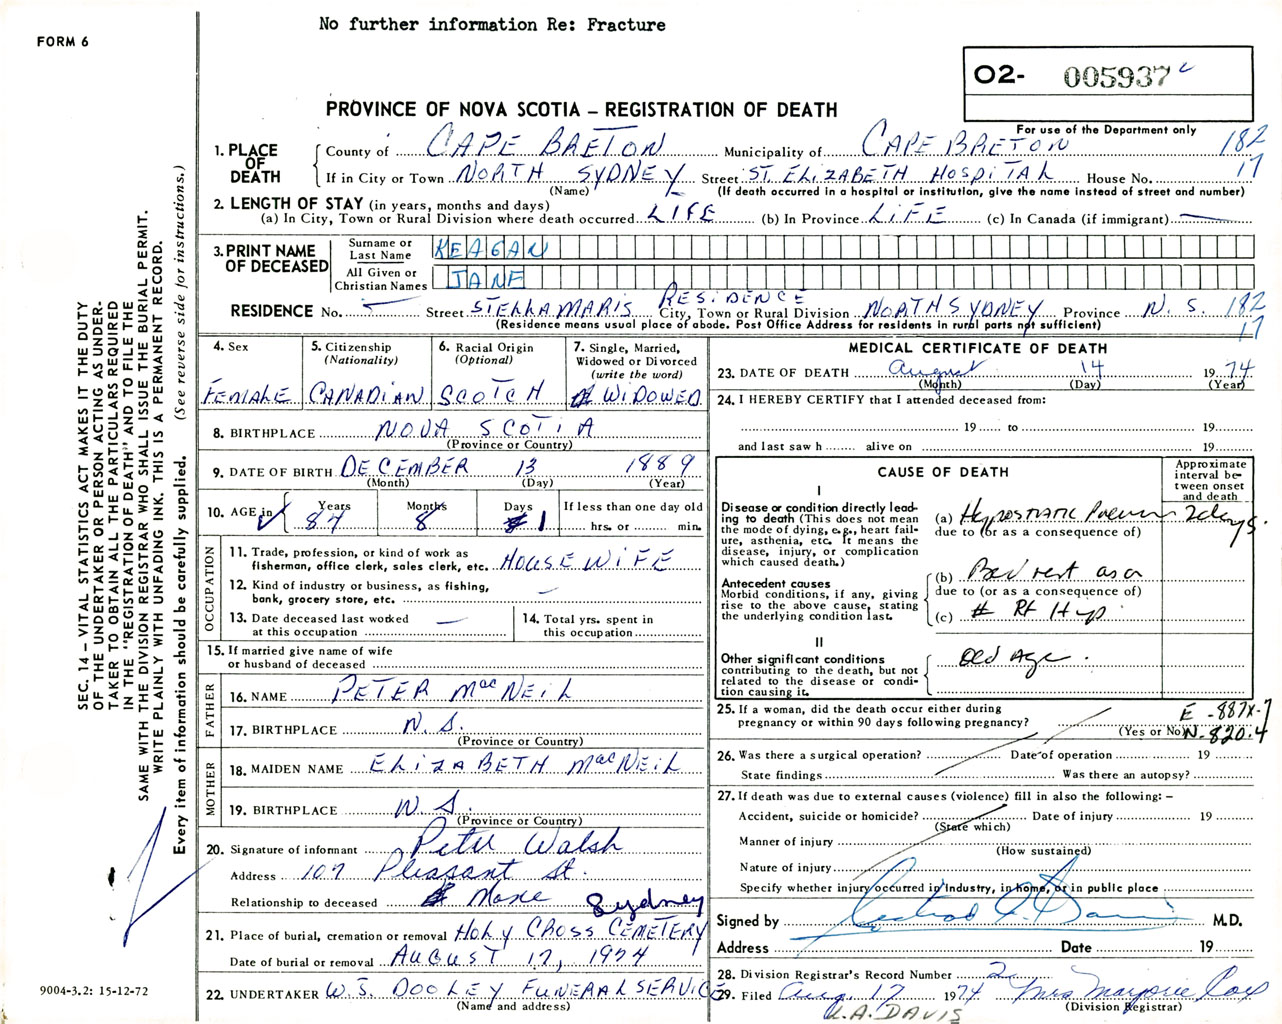 No further information Re: Fracture
FORM 6
O2- 005937
PROVINCE OF NOVA SCOTIA – REGISTRATION OF DEATH
For use of the Department only
182
17
1. PLACE OF DEATH
County of CAPE BRETON Municipality of CAPE BRETON
If in City or Town NORTH SYDNEY Street ST. ELIZABETH HOSPITAL House No.
(Name) (If death occurred in a hospital or institution, give the name instead of street and number)
2. LENGTH OF STAY (in years, months and days)
(a) In City, Town or Rural Division where death occurred LIFE (b) In Province LIFE (c) In Canada (if immigrant) —
3. PRINT NAME OF DECEASED
Surname or Last Name KEAGAN
All Given or Christian Names JANE
RESIDENCE No. — Street STELLA MARIS RESIDENCE City, Town or Rural Division NORTH SYDNEY Province N. S. 182
17
(Residence means usual place of abode. Post Office Address for residents in rural parts not sufficient)
4. Sex FEMALE
5. Citizenship (Nationality) CANADIAN
6. Racial Origin (Optional) SCOTCH
7. Single, Married, Widowed or Divorced (write the word) WIDOWED
8. BIRTHPLACE NOVA SCOTIA
(Province or Country)
9. DATE OF BIRTH DECEMBER 13 1889
(Month) (Day) (Year)
10. AGE in Years 84 Months 8 Days 1 If less than one day old
hrs. or min.
OCCUPATION
11. Trade, profession, or kind of work as fisherman, office clerk, sales clerk, etc. HOUSEWIFE
12. Kind of industry or business, as fishing, bank, grocery store, etc. —
13. Date deceased last worked at this occupation —
14. Total yrs. spent in this occupation
15. If married give name of wife or husband of deceased
FATHER
16. NAME PETER MacNEIL
17. BIRTHPLACE N. S.
(Province or Country)
MOTHER
18. MAIDEN NAME ELIZABETH MacNEIL
19. BIRTHPLACE N. S.
(Province or Country)
20. Signature of informant Peter Walsh
Address 107 Pleasant St.
Relationship to deceased None Sydney
21. Place of burial, cremation or removal HOLY CROSS CEMETERY
Date of burial or removal AUGUST 17, 1974
22. UNDERTAKER W. J. DOOLEY FUNERAL SERVICE
(Name and address)
MEDICAL CERTIFICATE OF DEATH
23. DATE OF DEATH August 14 1974
(Month) (Day) (Year)
24. I HEREBY CERTIFY that I attended deceased from:
19 to 19
and last saw h alive on 19
CAUSE OF DEATH
Approximate interval between onset and death
I
Disease or condition directly leading to death (This does not mean the mode of dying, e.g., heart failure, asthenia, etc. It means the disease, injury, or complication which caused death.)
(a) Hypostatic Pneum 2 days.
due to (or as a consequence of)
Antecedent causes
Morbid conditions, if any, giving rise to the above cause, stating the underlying condition last.
(b) Bed rest as a
due to (or as a consequence of)
(c) # Rt Hip
II
Other significant conditions
contributing to the death, but not related to the disease or condition causing it.
Old Age.
25. If a woman, did the death occur either during pregnancy or within 90 days following pregnancy?
(Yes or No)
E -887X-7
N-820.4
26. Was there a surgical operation? Date of operation 19
State findings Was there an autopsy?
27. If death was due to external causes (violence) fill in also the following: –
Accident, suicide or homicide? Date of injury 19
(State which)
Manner of injury
(How sustained)
Nature of injury
Specify whether injury occurred in industry, in home, or in public place
Signed by M.D.
Address Date 19
28. Division Registrar's Record Number 2
29. Filed Aug. 17 1974 Mrs Marjorie Cox
(Division Registrar)
A. DAVIS
SEC. 14 – VITAL STATISTICS ACT MAKES IT THE DUTY
OF THE UNDERTAKER OR PERSON ACTING AS UNDER-
TAKER TO OBTAIN ALL THE PARTICULARS REQUIRED
IN THE "REGISTRATION OF DEATH" AND TO FILE THE
SAME WITH THE DIVISION REGISTRAR WHO SHALL ISSUE THE BURIAL PERMIT.
WRITE PLAINLY WITH UNFADING INK. THIS IS A PERMANENT RECORD.
Every item of information should be carefully supplied. (See reverse side for instructions.)
9004-3.2: 15-12-72